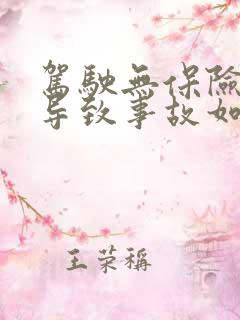 駕駛無保險
导致事故如
王荣稱